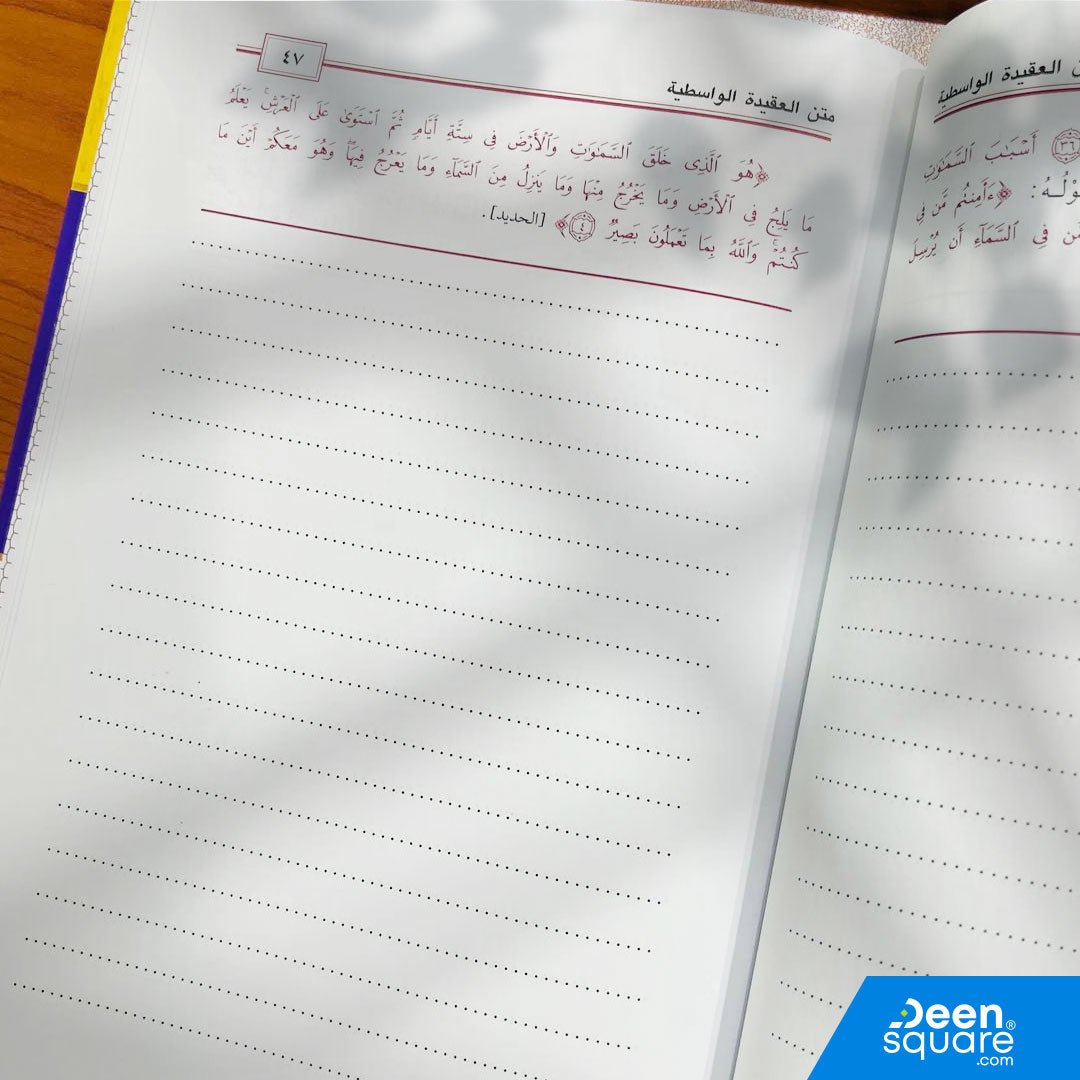 متن العقيدة الواسطية
٤٧
﴿هُوَ ٱلَّذِى خَلَقَ ٱلسَّمَـٰوَٰتِ وَٱلْأَرْضَ فِى سِتَّةِ أَيَّامٍ ثُمَّ ٱسْتَوَىٰ عَلَى ٱلْعَرْشِۚ يَعْلَمُ
مَا يَلِجُ فِى ٱلْأَرْضِ وَمَا يَخْرُجُ مِنْهَا وَمَا يَنزِلُ مِنَ ٱلسَّمَآءِ وَمَا يَعْرُجُ فِيهَاۖ وَهُوَ مَعَكُمْ أَيْنَ مَا
كُنتُمْۚ وَٱللَّهُ بِمَا تَعْمَلُونَ بَصِيرٌ ٤﴾ [الحديد].
العقيدة الواسطية
٣٦ أَسْبَـٰبَ ٱلسَّمَـٰوَٰتِ
﴿ءَأَمِنتُم مَّن فِى
فِى ٱلسَّمَآءِ أَن يُرْسِلَ
Deen
square®
.com